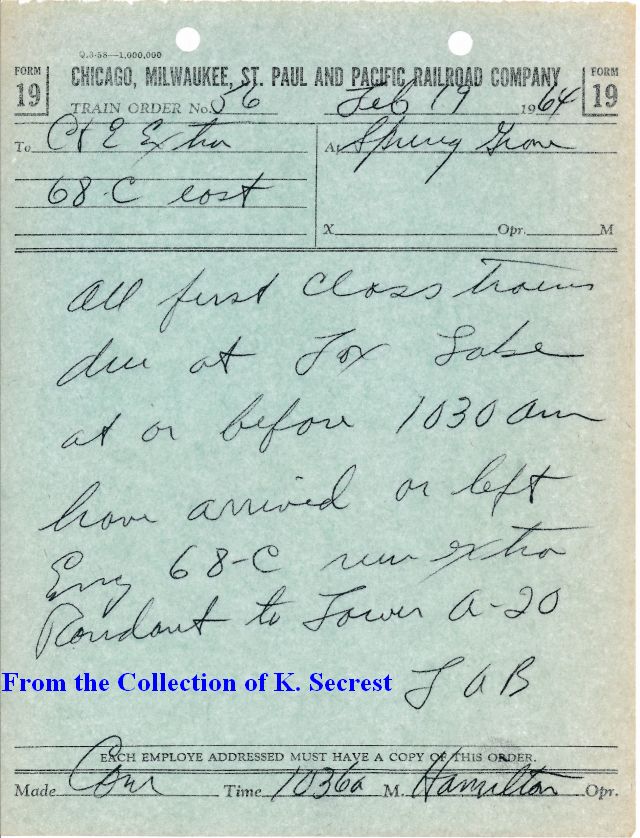 Q.3-58—1,000,000
FORM 19 CHICAGO, MILWAUKEE, ST. PAUL AND PACIFIC RAILROAD COMPANY FORM 19
TRAIN ORDER No. 56 Feb 19 1964
To C&E Extra At Spring Grove
68-C east
X Opr. M
All first class trains
due at Fox Lake
at or before 1030 am
have arrived or left
Eng 68-C run extra
Rondout to Tower A-20
From the Collection of K. Secrest L A B
EACH EMPLOYE ADDRESSED MUST HAVE A COPY OF THIS ORDER.
Made Com Time 1036a M. Hamilton Opr.